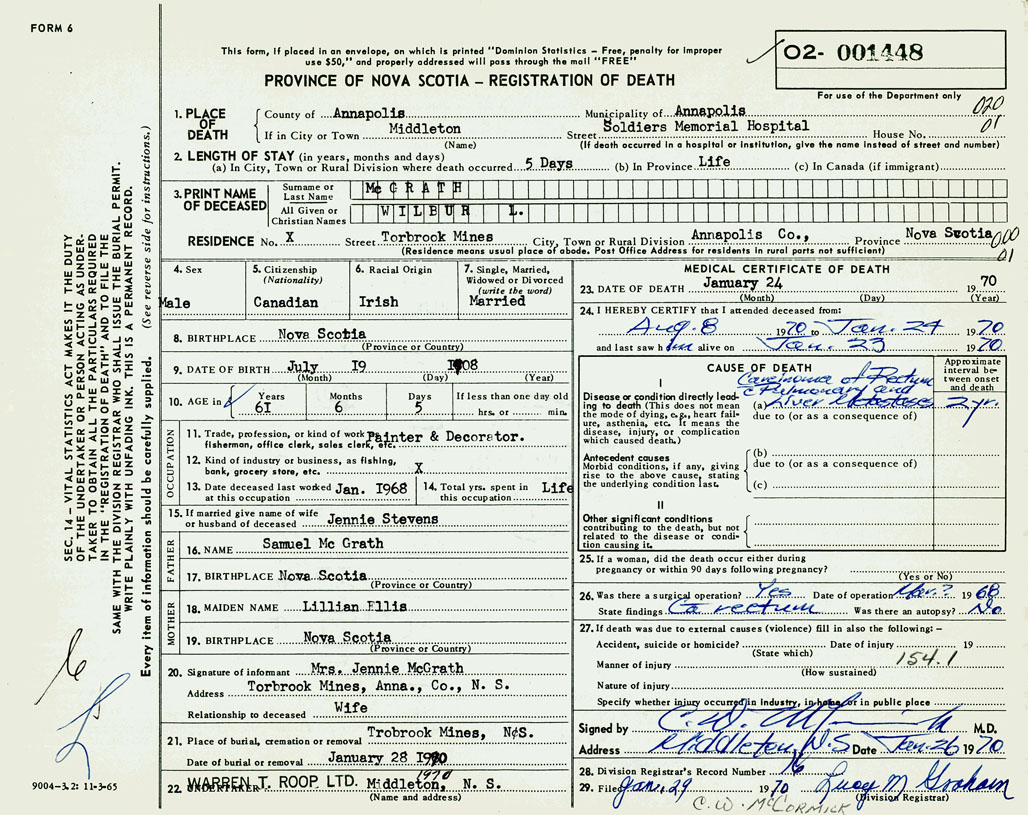 FORM 6
This form, if placed in an envelope, on which is printed "Dominion Statistics – Free, penalty for improper
use $50," and properly addressed will pass through the mail "FREE"
PROVINCE OF NOVA SCOTIA – REGISTRATION OF DEATH
O2- 001448
For use of the Department only
020
01
1. PLACE OF DEATH
County of Annapolis Municipality of Annapolis
If in City or Town Middleton Street Soldiers Memorial Hospital House No.
(Name) (If death occurred in a hospital or institution, give the name instead of street and number)
2. LENGTH OF STAY (in years, months and days)
(a) In City, Town or Rural Division where death occurred 5 Days (b) In Province Life (c) In Canada (if immigrant)
3. PRINT NAME OF DECEASED
Surname or Last Name McGRATH
All Given or Christian Names WILBUR L.
RESIDENCE No. X Street Torbrook Mines City, Town or Rural Division Annapolis Co., Province Nova Scotia
000
01
(Residence means usual place of abode. Post Office Address for residents in rural parts not sufficient)
4. Sex
Male
5. Citizenship
(Nationality)
Canadian
6. Racial Origin
Irish
7. Single, Married,
Widowed or Divorced
(write the word)
Married
8. BIRTHPLACE Nova Scotia
(Province or Country)
9. DATE OF BIRTH July I9 I908
(Month) (Day) (Year)
10. AGE in
Years Months Days If less than one day old
6I 6 5 hrs. or min.
OCCUPATION
11. Trade, profession, or kind of work Painter & Decorator.
fisherman, office clerk, sales clerk, etc.
12. Kind of industry or business, as fishing,
bank, grocery store, etc. X
13. Date deceased last worked at this occupation Jan. I968
14. Total yrs. spent in this occupation Life
15. If married give name of wife
or husband of deceased Jennie Stevens
FATHER
16. NAME Samuel Mc Grath
17. BIRTHPLACE Nova Scotia
(Province or Country)
MOTHER
18. MAIDEN NAME Lillian Ellis
19. BIRTHPLACE Nova Scotia
(Province or Country)
20. Signature of informant Mrs. Jennie McGrath
Address Torbrook Mines, Anna., Co., N. S.
Relationship to deceased Wife
21. Place of burial, cremation or removal Trobrook Mines, N.S.
Date of burial or removal January 28 1970
1970
22. UNDERTAKER WARREN T. ROOP LTD. Middleton, N. S.
(Name and address)
MEDICAL CERTIFICATE OF DEATH
23. DATE OF DEATH January 24 19 70
(Month) (Day) (Year)
24. I HEREBY CERTIFY that I attended deceased from:
Aug. 8 1970 to Jan. 24 1970
and last saw him alive on Jan. 23 1970
CAUSE OF DEATH
Approximate interval between onset and death
I
Disease or condition directly leading to death (This does not mean the mode of dying, e.g., heart failure, asthenia, etc. It means the disease, injury, or complication which caused death.)
Carcinoma of Rectum
c Pulmonary and
(a) Liver Metastases 2 yr.
due to (or as a consequence of)
Antecedent causes
Morbid conditions, if any, giving rise to the above cause, stating the underlying condition last.
(b)
due to (or as a consequence of)
(c)
II
Other significant conditions
contributing to the death, but not related to the disease or condition causing it.
25. If a woman, did the death occur either during
pregnancy or within 90 days following pregnancy?
(Yes or No)
26. Was there a surgical operation? Yes Date of operation Mar.? 1968
State findings Ca rectum Was there an autopsy? No
27. If death was due to external causes (violence) fill in also the following: –
Accident, suicide or homicide? Date of injury 19
(State which)
154.1
Manner of injury
(How sustained)
Nature of injury
Specify whether injury occurred in industry, in home, or in public place
Signed by M.D.
Address Middleton, N.S Date Jan. 26 1970
28. Division Registrar's Record Number 16
29. Filed Jan. 29 1970 Lucy M Graham
(Division Registrar)
C.W. McCORMICK
SEC. 14 – VITAL STATISTICS ACT MAKES IT THE DUTY
OF THE UNDERTAKER OR PERSON ACTING AS UNDER-
TAKER TO OBTAIN ALL THE PARTICULARS REQUIRED
IN THE "REGISTRATION OF DEATH" AND TO FILE THE
SAME WITH THE DIVISION REGISTRAR WHO SHALL ISSUE THE BURIAL PERMIT.
WRITE PLAINLY WITH UNFADING INK. THIS IS A PERMANENT RECORD.
Every item of information should be carefully supplied. (See reverse side for instructions.)
9004-3.2: 11-3-65